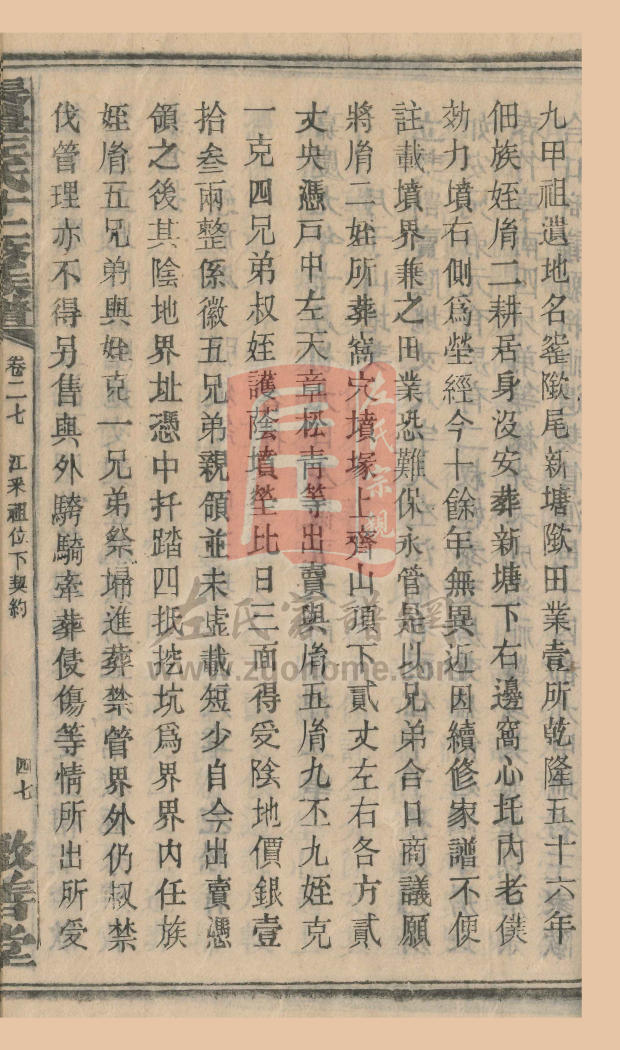 九甲祖遺地名窰陂尾新塘陂田業壹所乾隆五十六年
佃族姪脩二耕居身沒安葬新塘下右邊窩心圫內老僕
効力墳右側爲塋經今十餘年無異近因續修家譜不便
註載墳界兼之田業恐難保永管是以兄弟合口商議願
將脩二姓所葬窩穴墳塚上齊山頂下貳丈左右各方貳
丈央憑戸中左天章松靑等出賣與脩五脩九丕九姪克
一克四兄弟叔姪護蔭墳塋比日三面得受陰地價銀壹
拾叁兩整係徽五兄弟親領並未虛載短少自今出賣憑
領之後其陰地界址憑中扦踏四抵挖坑爲界界内任族
姪脩五兄弟與姪克一兄弟祭埽進葬禁管界外仍叔禁
伐管理亦不得另售與外騎牽葬侵傷等情所出所受
左氏十二修族譜
卷二七
江釆祖位下契約
四七
敦善堂
左氏宗親
左氏家譜網
www.zgohome.com